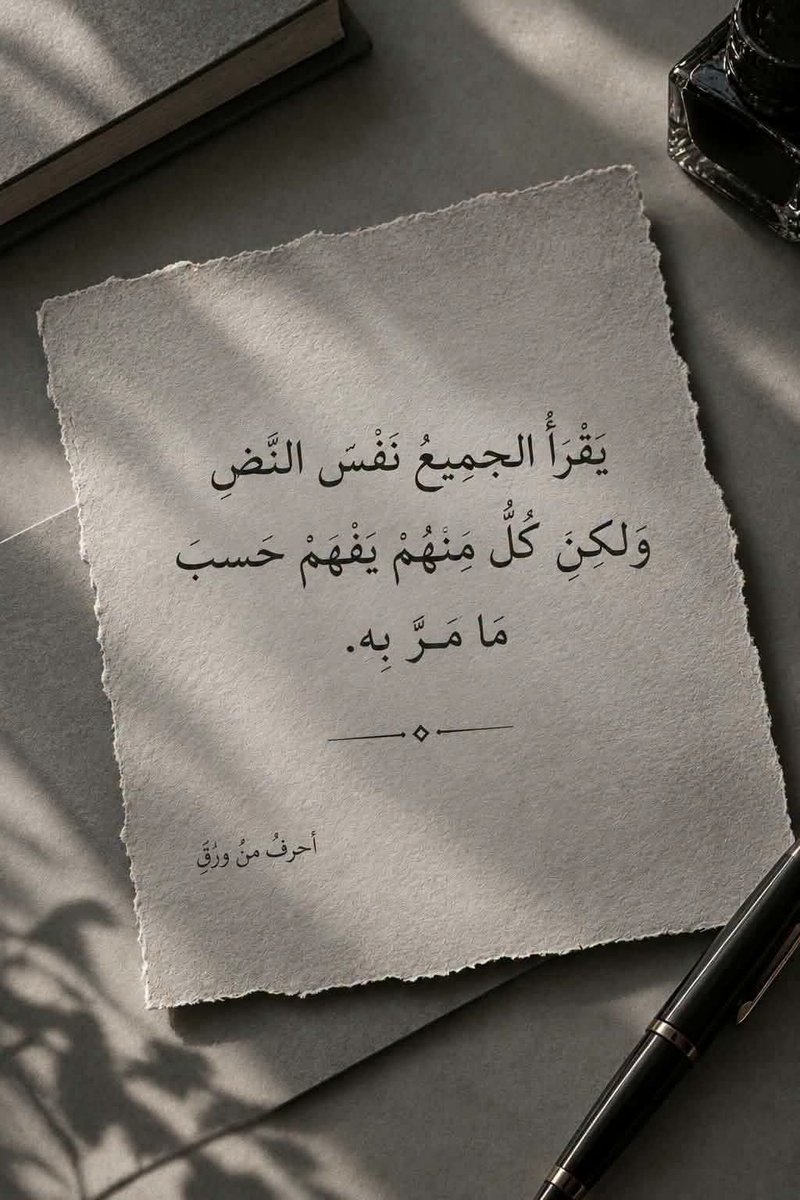 يَقْرَأُ الجمِيعُ نَفْسّ النَّضِ
وَلكِنَ كُلُّ مَِنْهُمْ يَفْهَمْ حَسبَ
مَا مَـرَّ بِه.
أحرفُ منُ ورُقَِ